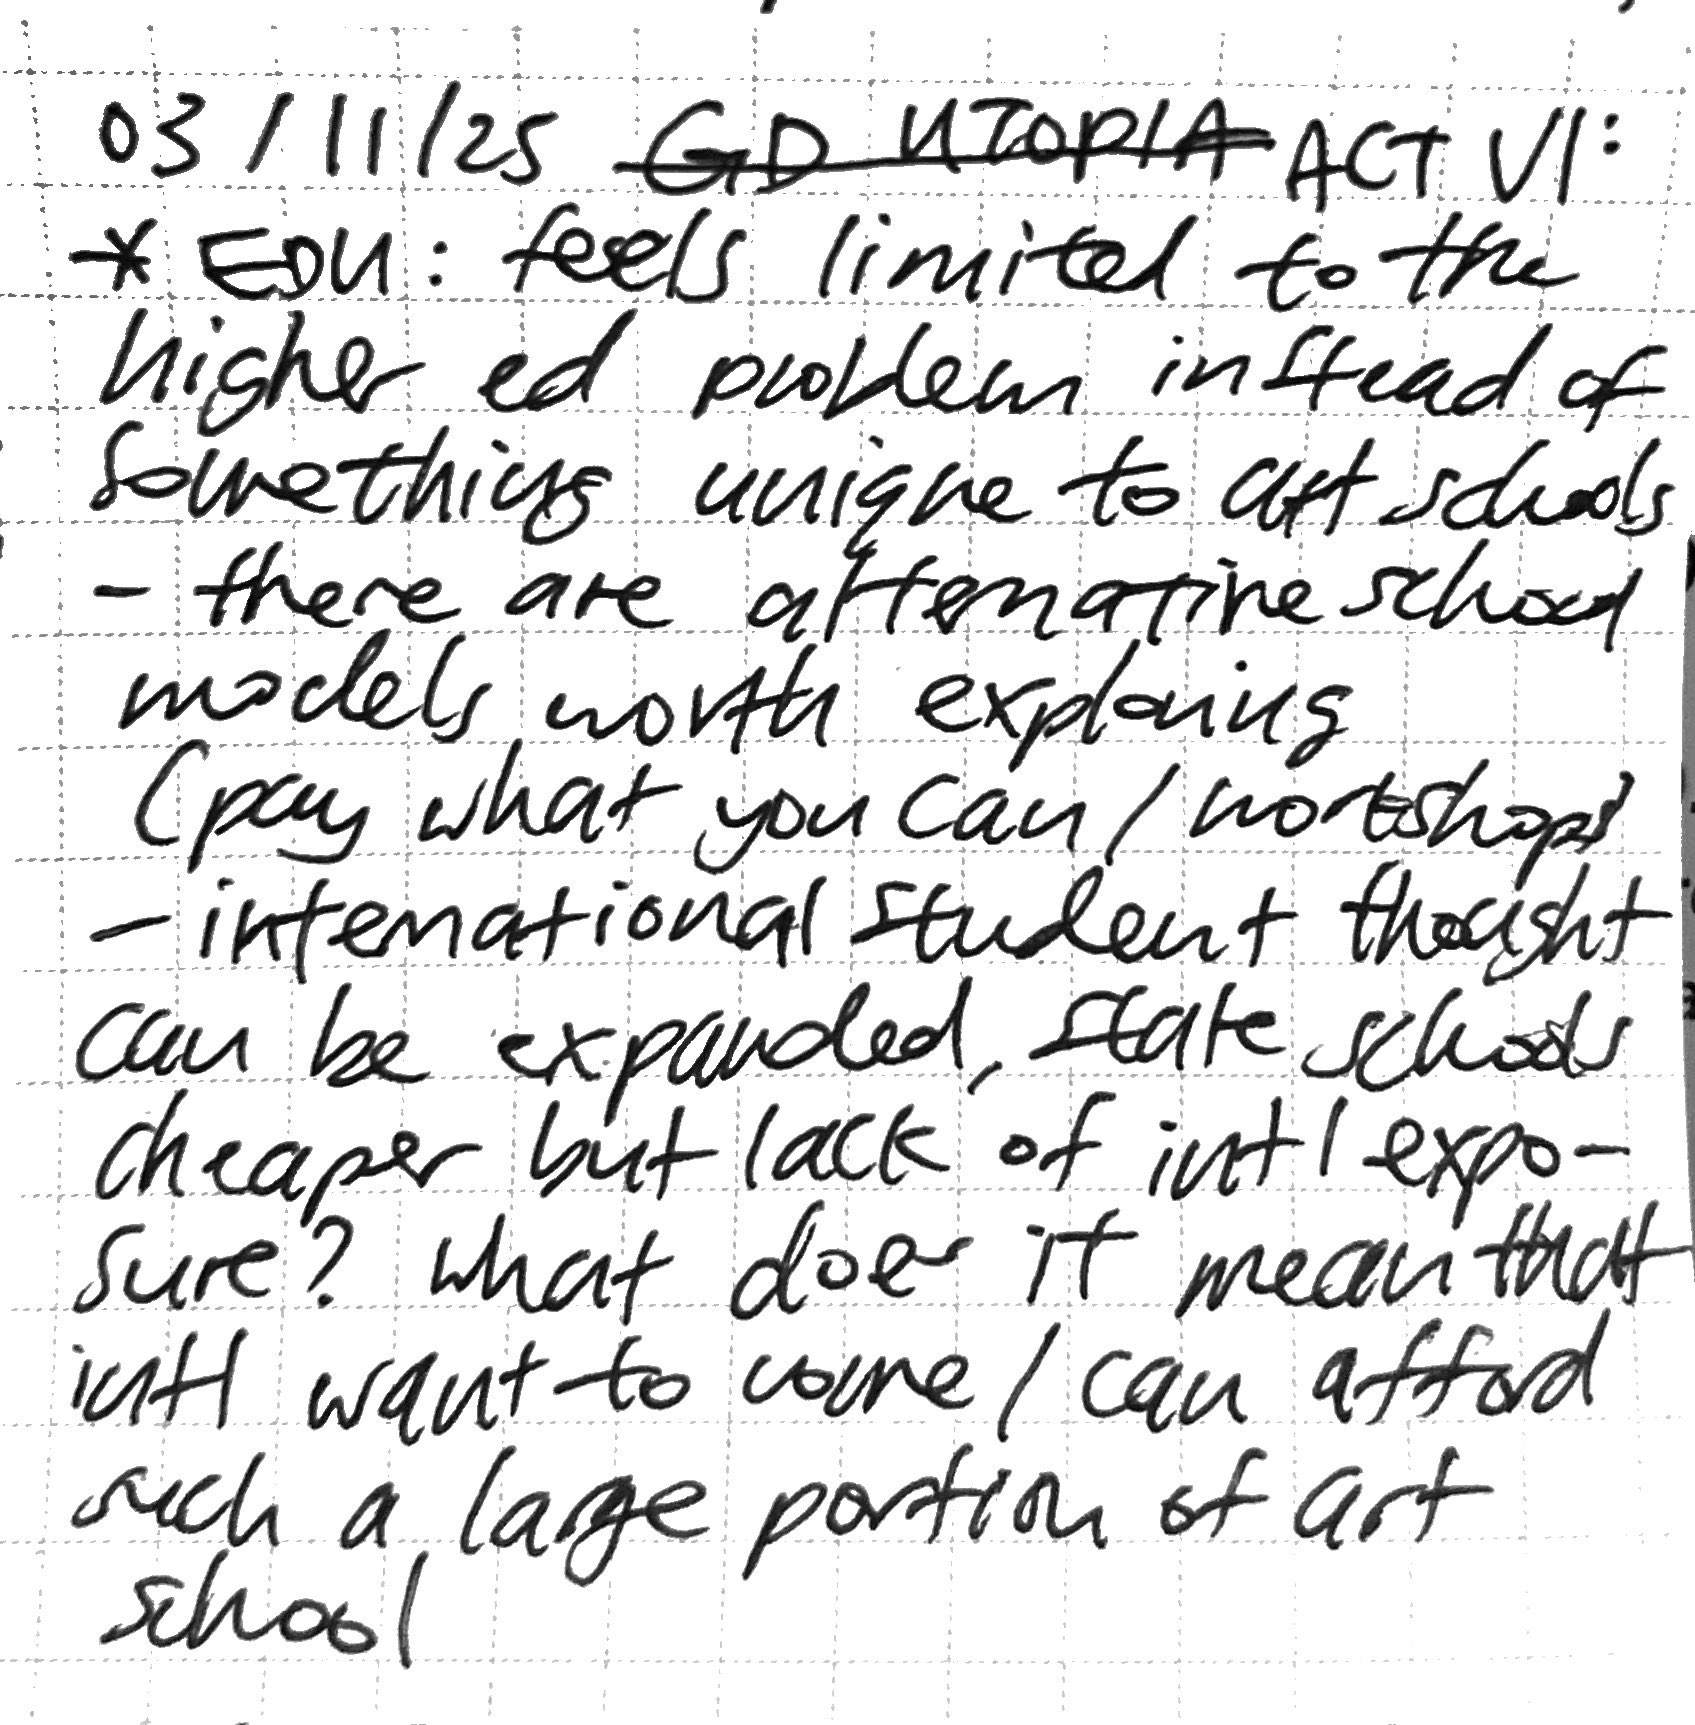 03/11/25 GD UTOPIA ACT VI:
* EDU: feels limited to the
higher ed problem instead of
something unique to art schools
- there are alternative school
models worth exploring
(pay what you can / workshops)
- international student thought
can be expanded, state schools
cheaper but lack of intl expo-
sure? what does it mean that
intl want to come / can afford
such a large portion of art
school